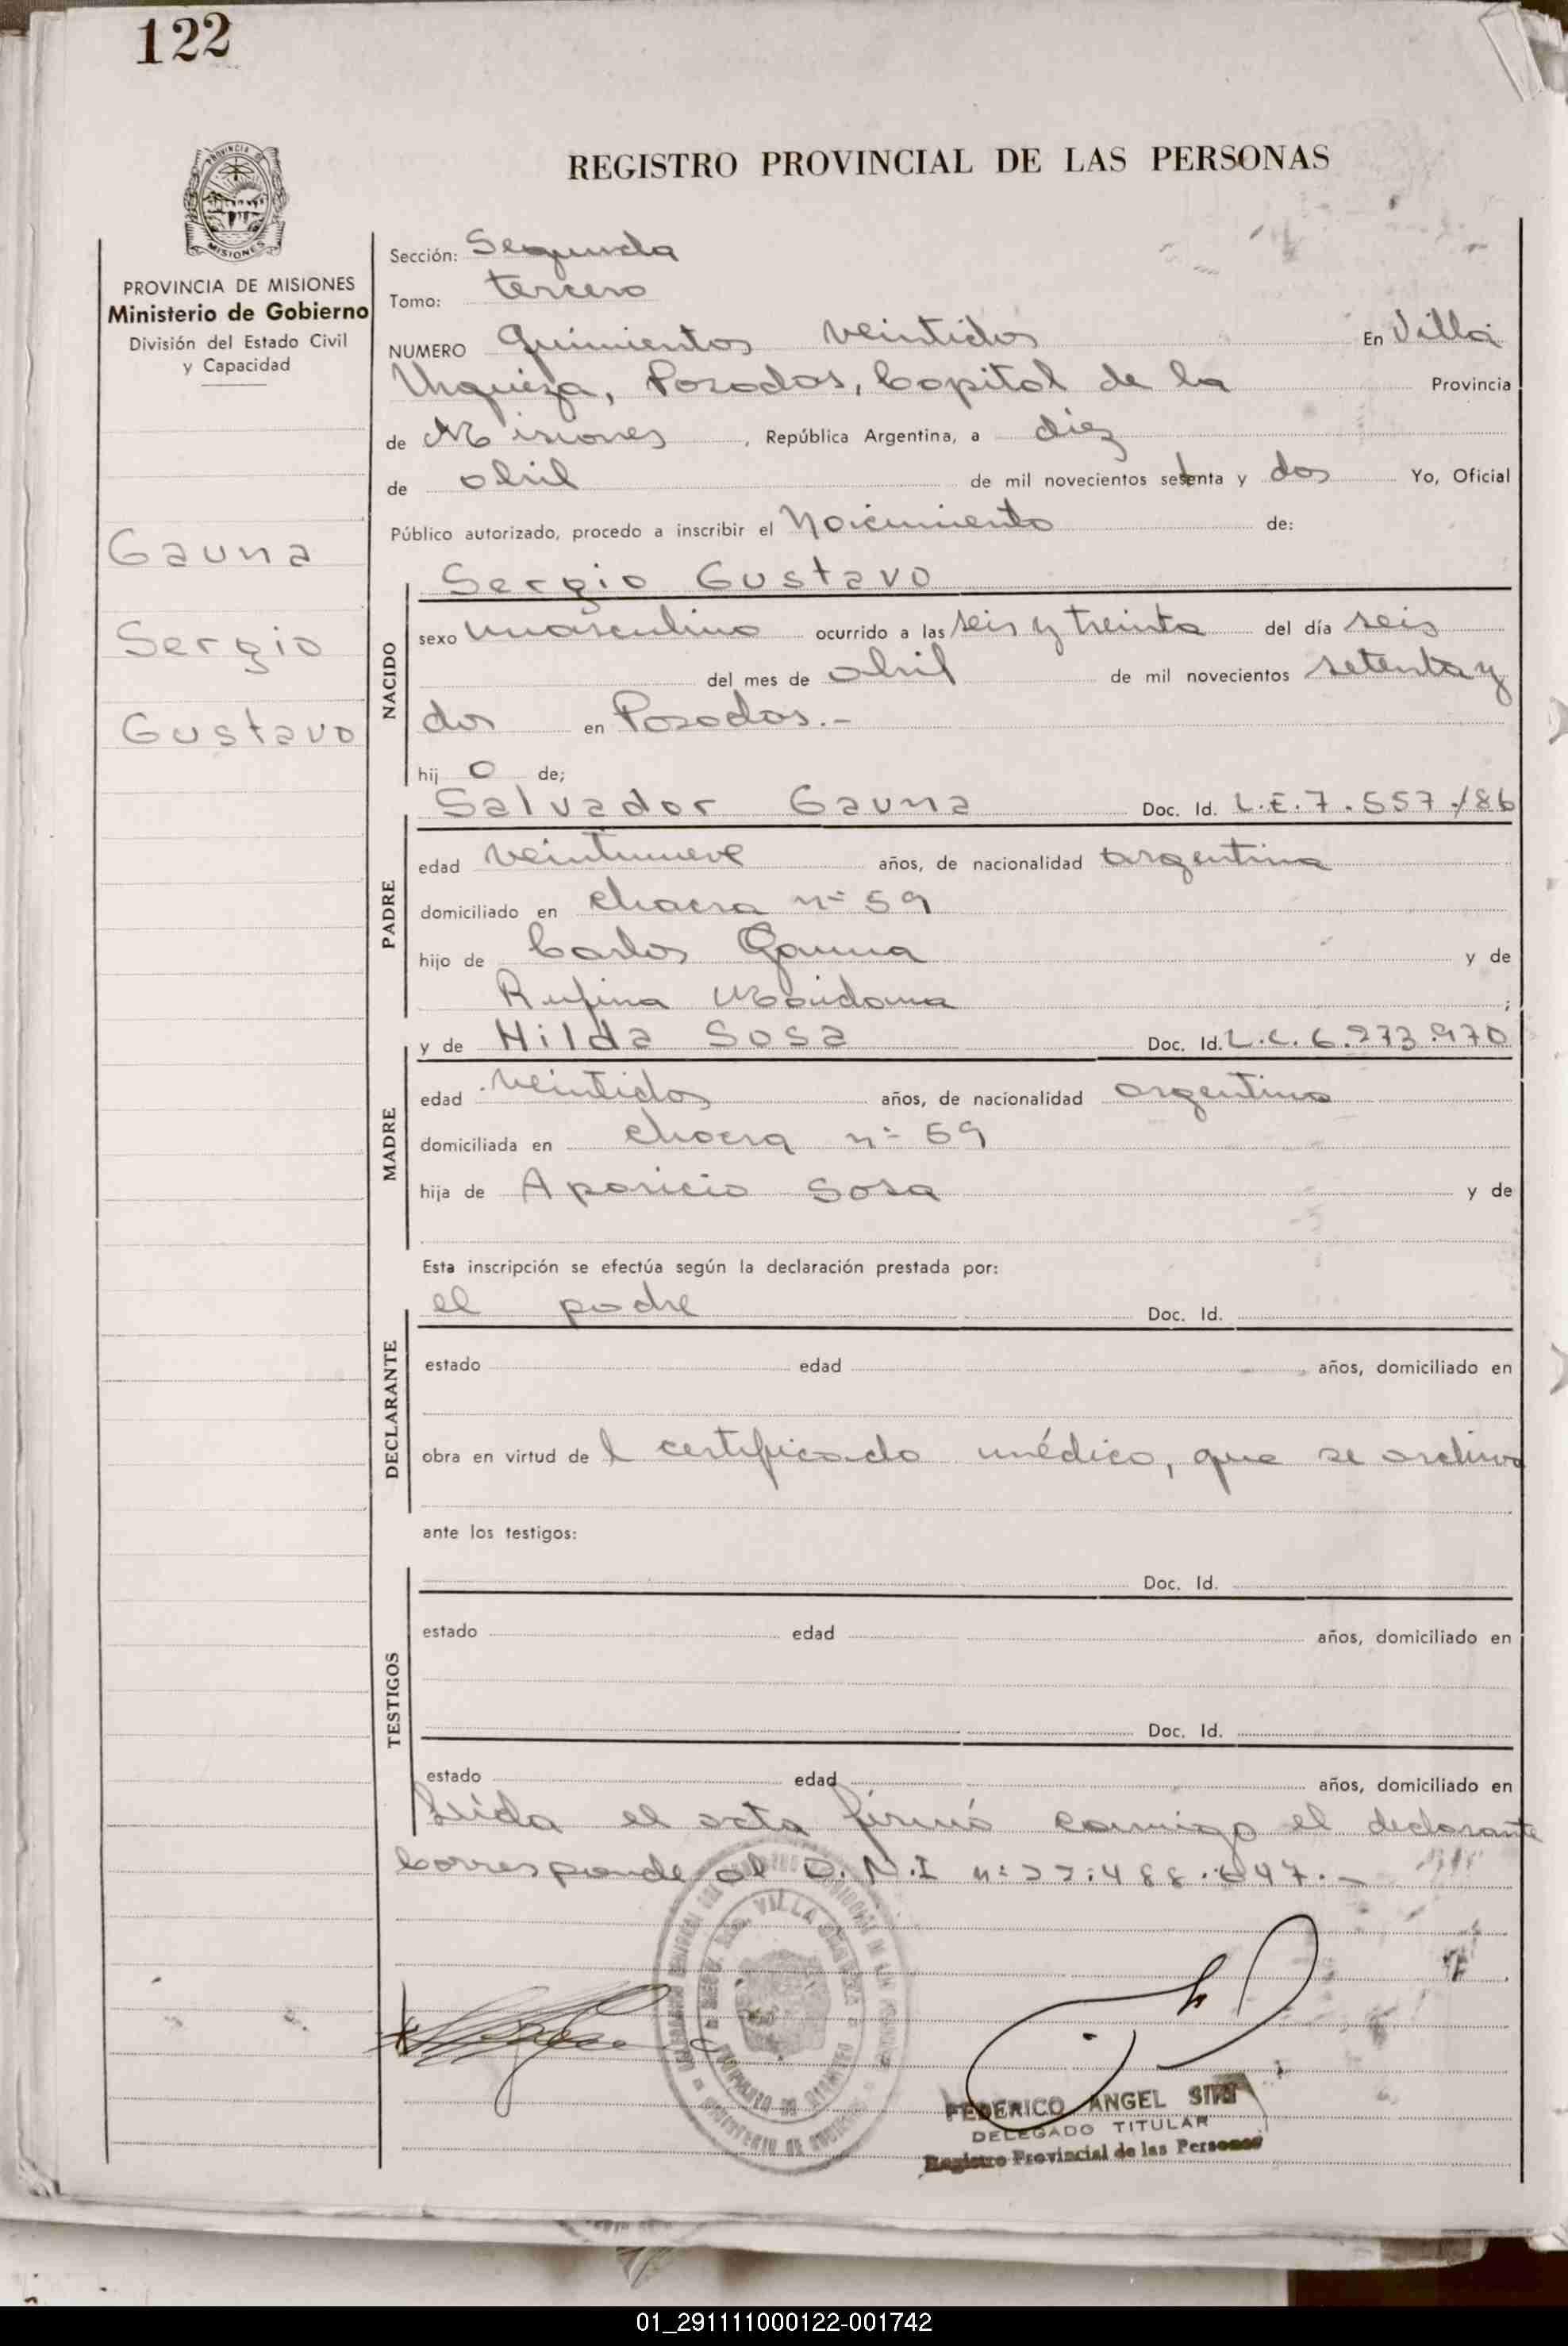 122
REGISTRO PROVINCIAL DE LAS PERSONAS
PROVINCIA DE MISIONES
Ministerio de Gobierno
División del Estado Civil
y Capacidad
Gauna
Sergio
Gustavo
Sección: Segunda
Tomo: tercero
NUMERO Quinientos veintidos En Villa
Urquiza, Posadas, Capital de la Provincia
de Misiones, República Argentina, a diez
de abril de mil novecientos setenta y dos Yo, Oficial
Público autorizado, procedo a inscribir el Nacimiento de:
NACIDO
Sergio Gustavo
sexo masculino ocurrido a las seis y treinta del día seis
del mes de abril de mil novecientos setenta y
dos en Posadas.-
hij o de;
PADRE
Salvador Gauna Doc. Id. L.E. 7.557.186
edad veintinueve años, de nacionalidad argentina
domiciliado en chacra nº 59
hijo de Carlos Gauna y de
Rufina ;
MADRE
y de Hilda Sosa Doc. Id. L.C. 6.273.970
edad veintidos años, de nacionalidad argentina
domiciliada en chacra nº 59
hija de Aparicio Sosa y de
Esta inscripción se efectúa según la declaración prestada por:
DECLARANTE
el padre Doc. Id.
estado edad años, domiciliado en
obra en virtud de l certificado médico, que se archiva
ante los testigos:
TESTIGOS
Doc. Id.
estado edad años, domiciliado en
Doc. Id.
estado edad años, domiciliado en
Leída el acta firmó conmigo el declarante
Corresponde al D.N.I nº 22.488.647.-
VILLA URQUIZA
FEDERICO ANGEL
DELEGADO TITULAR
Registro Provincial de las Personas
01_291111000122-001742